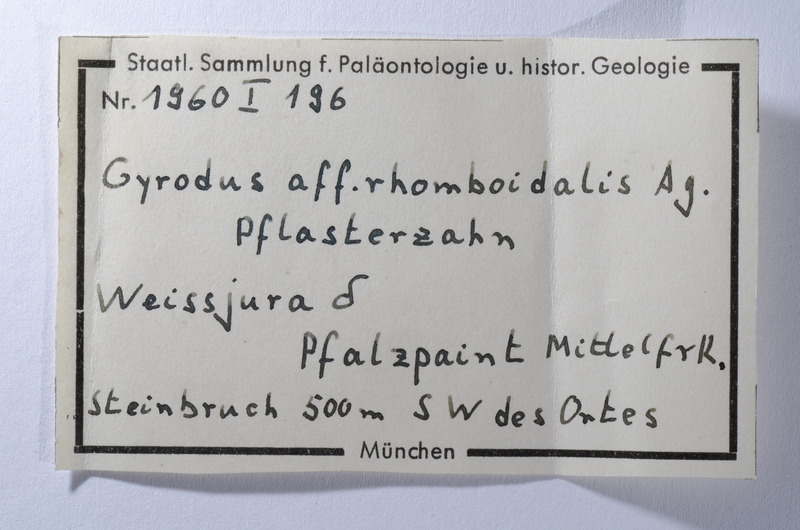 Staatl. Sammlung f. Paläontologie u. histor. Geologie
Nr. 1960 I 196
Gyrodus aff. rhomboidalis Ag.
Pflasterzahn
Weissjura δ
Pfalzpaint Mittelfrk.
Steinbruch 500m SW des Ortes
München